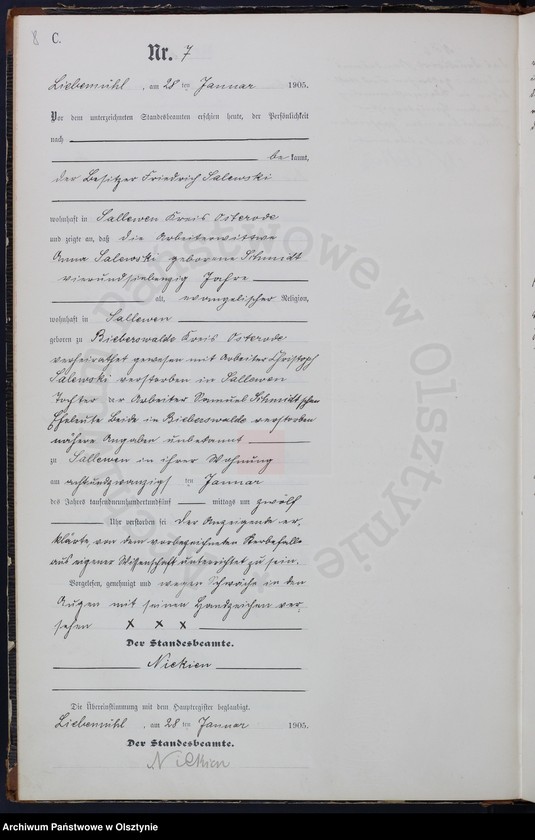 8 C.
Nr. 7
Liebemühl, am 28 ten Januar 1905.
Vor dem unterzeichneten Standesbeamten erschien heute, der Persönlichkeit
nach
be kannt,
der Besitzer Friedrich Salewski
wohnhaft in Sallewen Kreis Osterode
und zeigte an, daß die Arbeiterwittwe
Anna Salewski geborene Schmidt
vierundsiebenzig Jahre
alt, evangelischer Religion,
wohnhaft in Sallewen
geboren zu Bieberswalde Kreis Osterode
verheirathet gewesen mit Arbeiter Christoph
Salewski verstorben in Sallewen
Tochter der Arbeiter Samuel Schmidt'schen
Eheleute Beide in Bieberswalde verstorben
nähere Angaben unbekannt
zu Sallewen in ihrer Wohnung
am achtundzwanzigs ten Januar
des Jahrs tausendneunhundertundfünf mittags um zwölf
Uhr verstorben sei Der Anzeigende er,
klärte, von dem vorbezeichneten Sterbefalle
aus eigener Wissenschaft unterrichtet zu sein.
Vorgelesen, genehmigt und wegen Schwäche in den
Augen mit seinen Handzeichen ver,
sehen x x x
Der Standesbeamte.
Nickien
Die Übereinstimmung mit dem Hauptregister beglaubigt.
Liebemühl, am 28 ten Januar 1905.
Der Standesbeamte.
Nickien
Archiwum Państwowe w Olsztynie